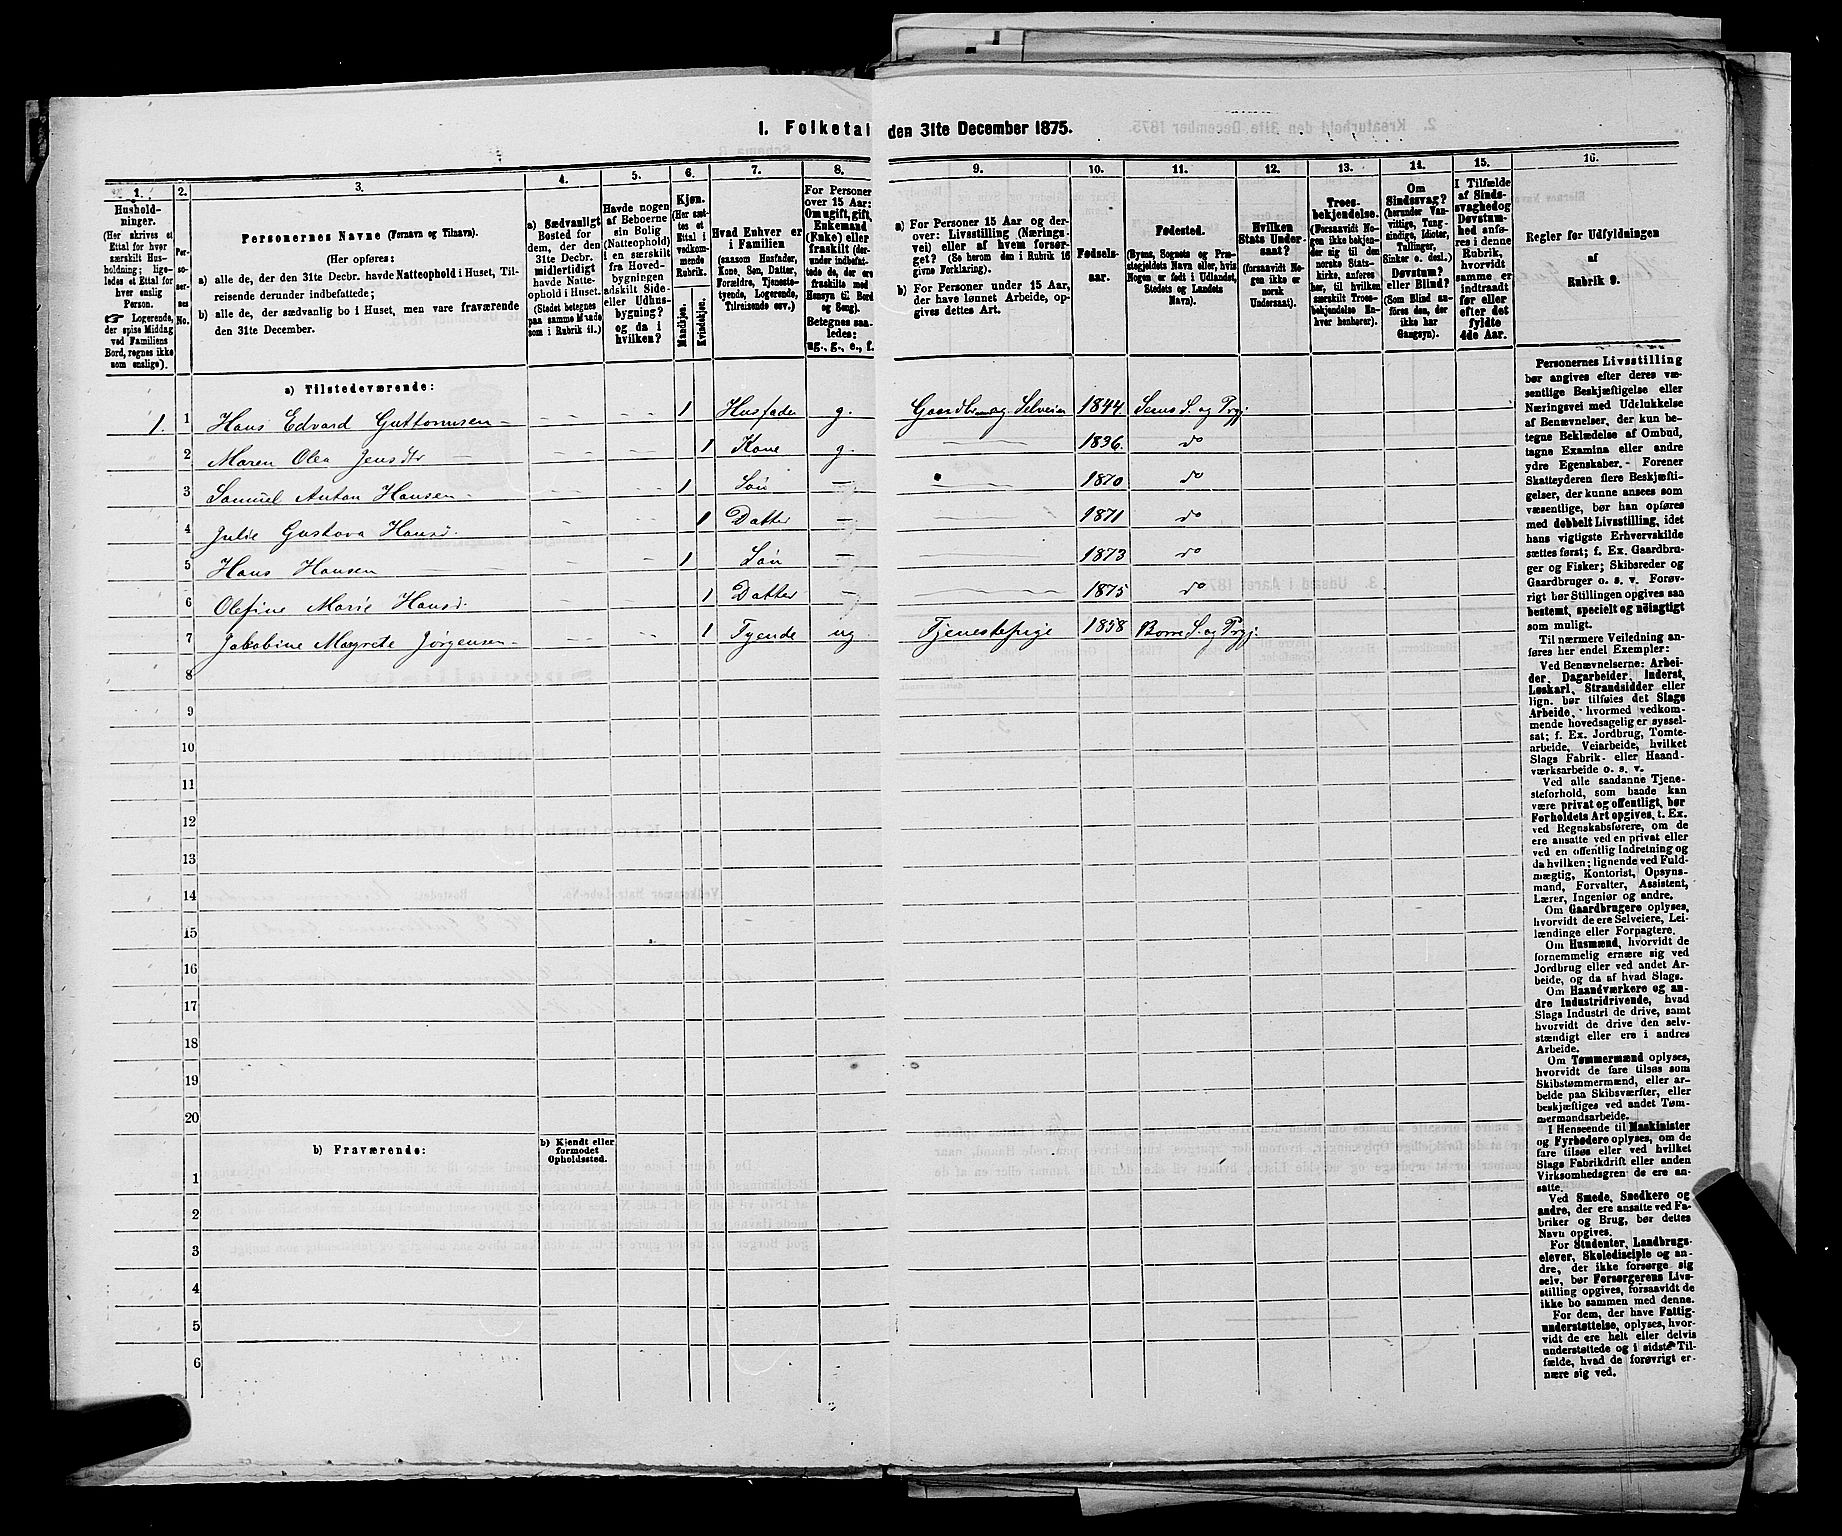 I. Folketal den 31te December 1875.
1. 2. 3. 4. 5. 6. 7. 8. 9. 10. 11. 12. 13. 14. 15. 16.
Husholdninger.
(Her skrives et
Ettal for hver
særskilt Husholdning;
ligeledes et Ettal for
hver enslig
Person.
☞ Logerende,
der spise Middag
ved Familiens
Bord, regnes ikke
som enslige).
Personernes No.
Personernes Navne (Fornavn og Tilnavn).
(Her opføres:
a) alle de, der den 31te Decbr. havde Natteophold i Huset, Tilreisende
derunder indbefattede;
b) alle de, der sædvanlig bo i Huset, men vare fraværende
den 31te December.
a) Sædvanligt
Bosted for
dem, der den
31te Decbr.
midlertidigt
havde Natteophold
i Huset.
(Stedet betegnes
paa samme Maade
som i Rubrik 11.)
Havde nogen
af Beboerne
sin Bolig
(Natteophold)
i en særskilt
fra Hovedbygningen
adskilt Side-
eller Udhusbygning?
og da i
hvilken?
Kjøn.
(Her sættes
et
Ettal i
vedkommende
Rubrik.
Mandkjøn.
Kvindekjøn.
Hvad Enhver er
i Familien
(saasom Husfader,
Kone, Søn, Datter,
Forældre, Tjenestetyende,
Logerende,
Tilreisende osv.)
For Personer
over 15 Aar:
Om ugift, gift,
Enkemand
(Enke) eller
fraskilt (derunder
indbefattede
de, der ere
fraskilte med
Hensyn til Bord
og Seng).
Betegnes saaledes:
ug., g., e., f.
a) For Personer 15 Aar og derover:
Livsstilling (Næringsvei)
eller af hvem forsørget?
(Se herom den i Rubrik 16
givne Forklaring).
b) For Personer under 15 Aar,
der have lønnet Arbeide, opgives
dettes Art.
Fødselsaar.
Fødested.
(Byens, Sognets og Præstegjeldets
Navn eller, hvis
Nogen er født i Udlandet,
Stedets og Landets
Navn).
Hvilken
Stats Undersaat?
(forsaavidt Nogen
ikke er
norsk
Undersaat).
Troesbekjendelse.
(Forsaavidt Nogen
ikke bekjender
sig til den
norske Statskirke,
anføres
her, til hvilken
særskilt Troesbekjendelse
Enhver
henhører).
Om
Sindssvag?
(herunder Vanvittige,
Tungsindige,
Idioter,
Tullinger,
Sinker o. desl.)
Døvstum?
eller Blind?
(Som Blind anføres
den, der
ikke har
Gangsyn).
I Tilfælde
af Sindssvaghed
og
Døvstumhed
anføres
i denne
Rubrik,
hvorvidt
samme er
indtraadt
før eller
efter det
fyldte
4de Aar.
Regler for Udfyldningen
af
Rubrik 9.
a) Tilstedeværende:
1. 1 Hans Edvard Guttormsen 1 Husfader g. Gaardbrug Selveier 1844 Sems S. og Prgj.
2 Maren Olea Jensdtr 1 Kone g. 1836. do
3 Samuel Anton Hansen 1 Søn 1870 do
4 Julie Gustava Hansd. 1 Datter 1871 do
5 Hans Hansen 1 Søn 1873 do
6 Olefine Marie Hansd. 1 Datter 1875 do
7 Jakobine Margrete Jørgensen 1 Tyende ug Tjenestepige 1858 Borre S. og Prgj.
8
9
10
11
12
13
14
15
16
17
18
19
20
b) Fraværende:
b) Kjendt eller
formodet
Opholdssted.
1
2
3
4
5
6
Personernes Livsstilling
bør angives efter deres væsentlige
Beskjæftigelse eller
Næringsvei med Udelukkelse
af Benævnelser, der kun betegne
Beklædelse af Ombud,
tagne Examina eller andre
ydre Egenskaber. - Forener
Skatteyderen flere Beskjæftigelser,
der kunne ansees som
væsentlige, bør han opføres
med dobbelt Livsstilling, idet
hans vigtigste Erhvervskilde
sættes først; f. Ex. Gaardbruger
og Fisker; Skibsreder og
Gaardbruger o. s. v. Forøvrigt
bør Stillingen opgives saa
bestemt, specielt og nøiagtigt
som muligt.
Til nærmere Veiledning anføres
her endel Exempler:
Ved Benævnelserne: Arbeider,
Dagarbeider, Inderst,
Løskarl, Strandsidder eller
lign. bør tilføies det Slags
Arbeide, hvormed vedkommende
hovedsagelig er sysselsat;
f. Ex. Jordbrug, Tomtearbeide,
Veiarbeide, hvilket
Slags Fabrik- eller Haandværksarbeide
o. s. v.
Ved alle saadanne Tjenesteforhold,
som baade kan
være privat og offentligt, bør
Forholdets Art opgives, t. Ex.
ved Regnskabsførere, om de
ere ansatte ved en privat eller
ved en offentlig Indretning og
da hvilken; lignende ved Fuldmægtig,
Kontorist, Opsynsmand,
Forvalter, Assistent,
Lærer, Ingeniør og andre.
Om Gaardbrugere oplyses,
hvorvidt de ere Selveiere, Leilændinge
eller Forpagtere.
Om Husmænd, hvorvidt de
fornemmelig ernære sig ved
Jordbrug eller ved andet Arbeide,
og da af hvad Slags.
Om Haandværkere og andre
Industridrivende, hvad
Slags Industri de drive, samt
hvorvidt de drive den selvstændigt
eller ere i andres
Arbeide.
Om Tømmermænd oplyses,
hvorvidt de fare tilsøs som
Skibstømmermænd, eller arbeide
paa Skibsværfter, eller
beskjæftiges ved andet Tømmermandsarbeide.
I Henseende til Maskinister
og Fyrbødere oplyses, om de
fare tilsøs eller ved hvilket
Slags Fabrikdrift eller anden
Virksomhedsgren de ere ansatte.
Ved Smede, Snedkere og
andre, der ere ansatte ved Fabriker
og Brug, bør dettes
Navn opgives.
For Studenter, Landbrugselever,
Skoledisciple og andre,
der ikke forsørge sig
selv, bør Forsørgerens Livsstilling
opgives, forsaavidt de
ikke bo sammen med denne.
For dem, der have Fattigunderstøttelse,
oplyses, hvorvidt
de ere helt eller delvis
understøttede og i sidste Tilfælde,
hvad de forøvrigt ernære
sig ved.